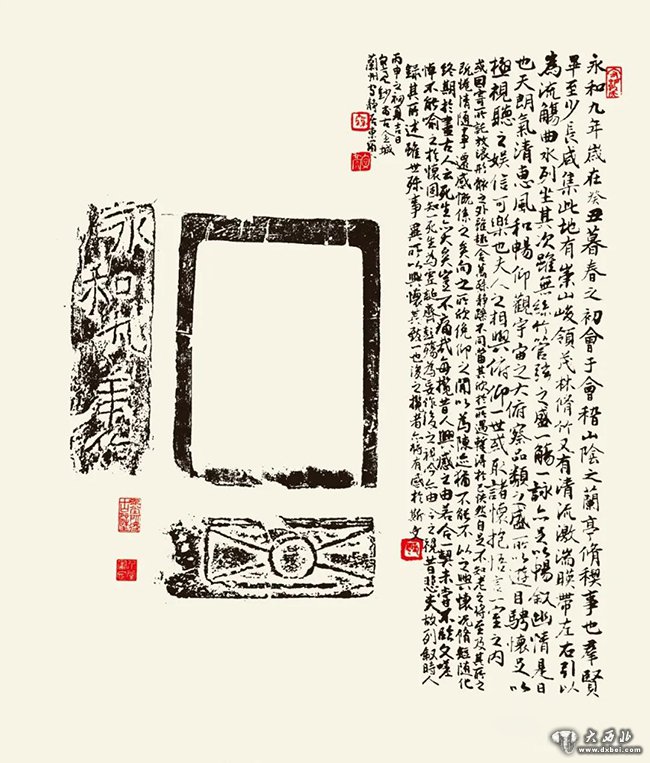 永和九年歲在癸丑暮春之初會于會稽山陰之蘭亭脩稧事也羣賢
畢至少長咸集此地有崇山峻領茂林脩竹又有清流激湍暎帶左右引以
為流觴曲水列坐其次雖無絲竹管弦之盛一觴一詠亦足以暢叙幽情是日
也天朗氣清惠風和暢仰觀宇宙之大俯察品類之盛所以遊目騁懷足以
極視聽之娛信可樂也夫人之相與俯仰一世或取諸懷抱悟言一室之內
或因寄所託放浪形骸之外雖趣舍萬殊靜躁不同當其欣於所遇暫得於己怏然自足不知老之將至及其所之
既惓情隨事遷感慨係之矣向之所欣俛仰之間以為陳迹猶不能不以之興懷況脩短隨化
終期於盡古人云死生亦大矣豈不痛哉每攬昔人興感之由若合契未嘗不臨文嗟
悼不能喻之於懷固知一死生為虛誕齊彭殤為妄作後之視今亦由今之視昔悲夫故列叙時人
錄其所述雖世殊事異所以興懷其致一也後之攬者亦將有感於斯文
丙申之初夏吉日
古金城
蘭州
永和九年作
大西北
www.dxbei.com